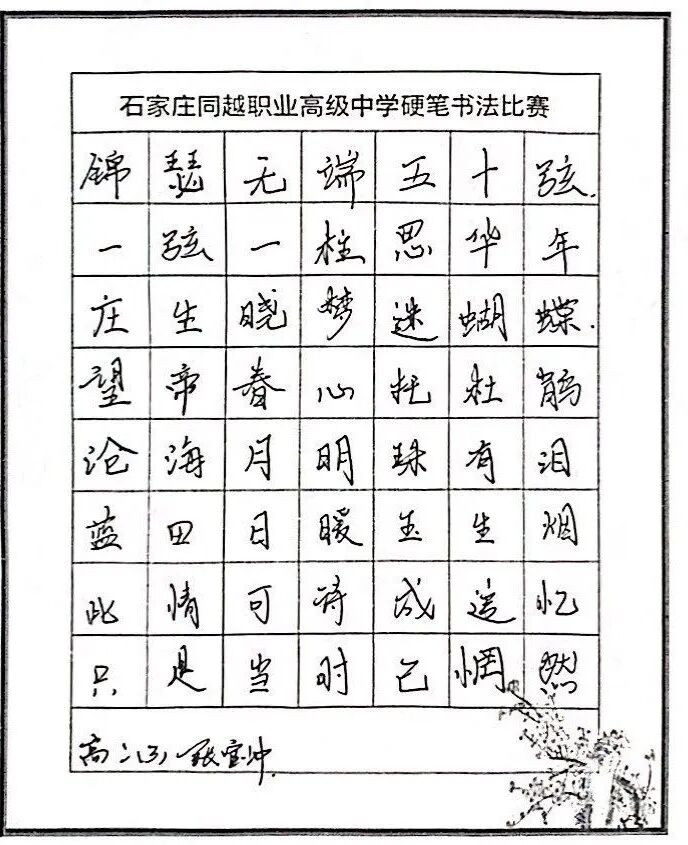 石家庄同越职业高级中学硬笔书法比赛
锦瑟无端五十弦.
一弦一柱思华年
庄生晓梦迷蝴蝶.
望帝春心托杜鹃
沧海月明珠有泪
蓝田日暖玉生烟
此情可待成追忆
只是当时已惘然
高二(3) 张